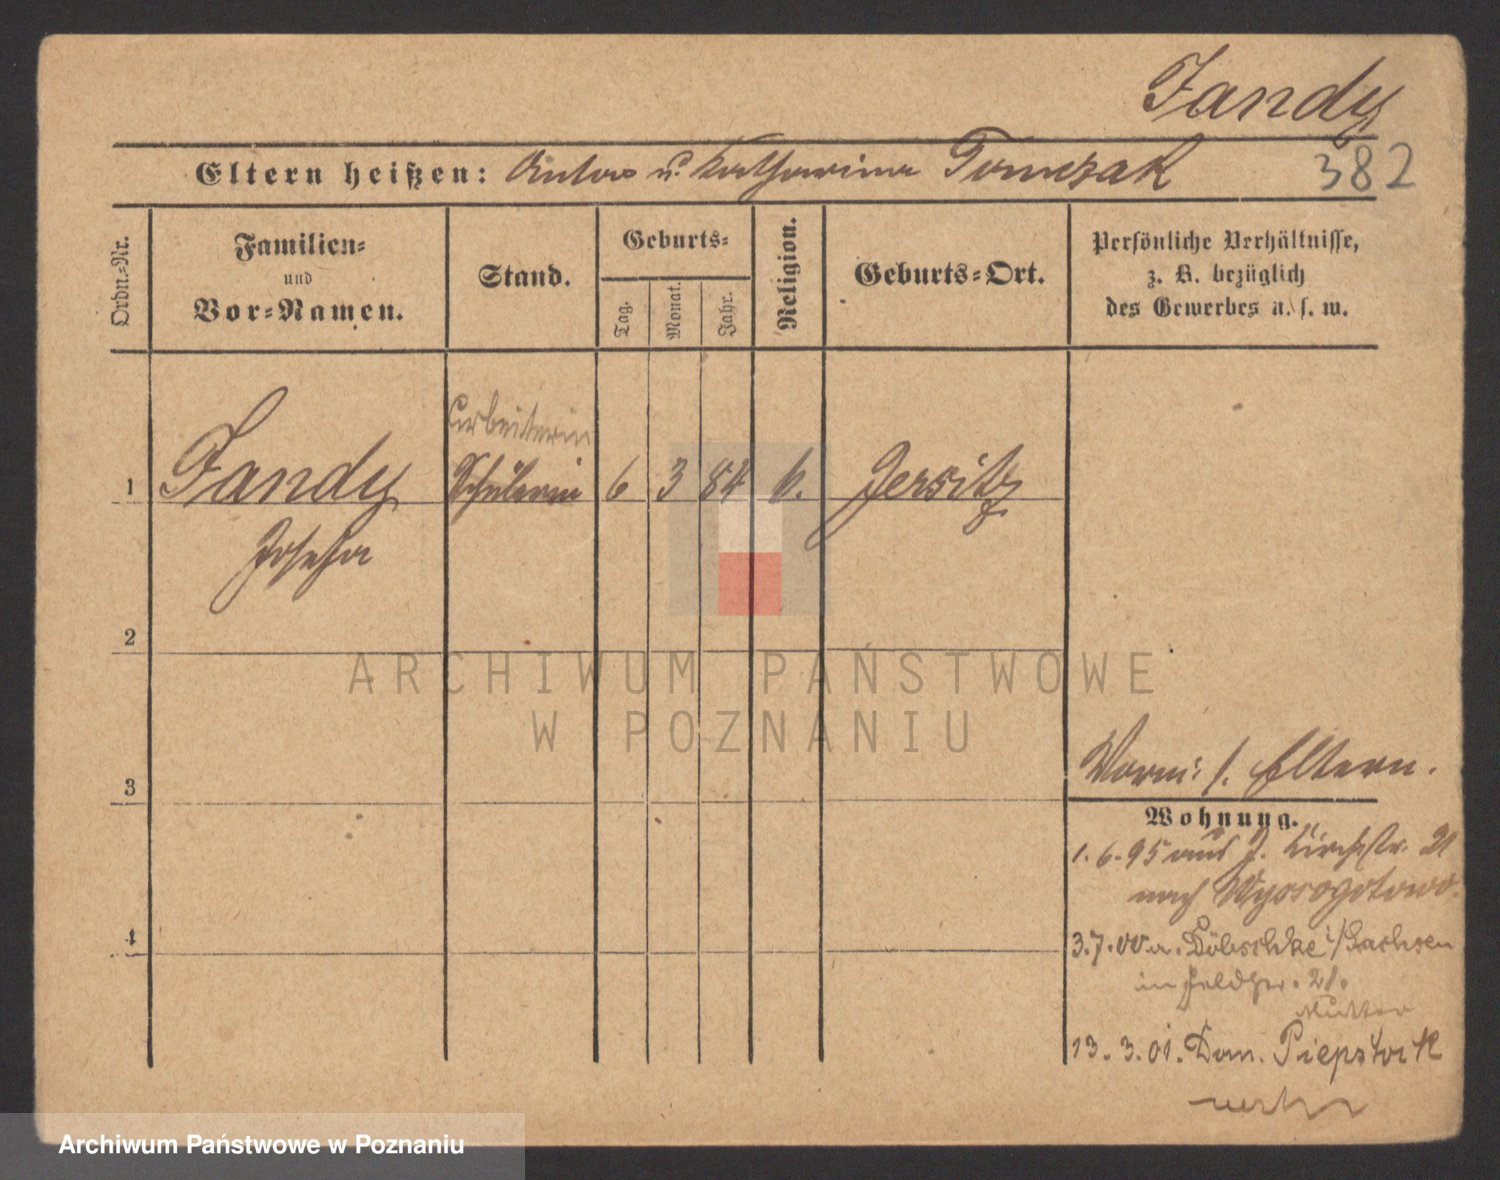 Jandy
382
Eltern heißen: Anton u. Katharina Tomczak
Ordn.-Nr.
Familien-
und
Vor-Namen.
Stand.
Geburts-
Tag.
Monat.
Jahr.
Religion.
Geburts-Ort.
Persönliche Verhältnisse,
z. B. bezüglich
des Gewerbes u. s. w.
Arbeiterin
1 Jandy Schülerin 6 3 84 k. Jersitz
Josefa
2
3
4
Worm: s. Eltern.
Wohnung.
1.6.95 aus J. Kirchstr. 21
nach Wysogotowo.
3.7.00 a. Döbschke i/Sachsen
in Feldstr. 21.
Mutter
13.3.01. Dom. Piepstock
ARCHIWUM PAŃSTWOWE
W POZNANIU
Archiwum Państwowe w Poznaniu